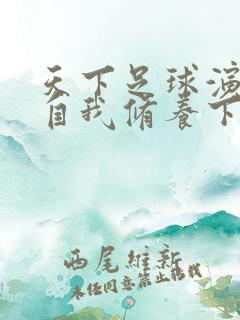 天下足球演
自我脩养下
西尾維新
未经同意禁止转载